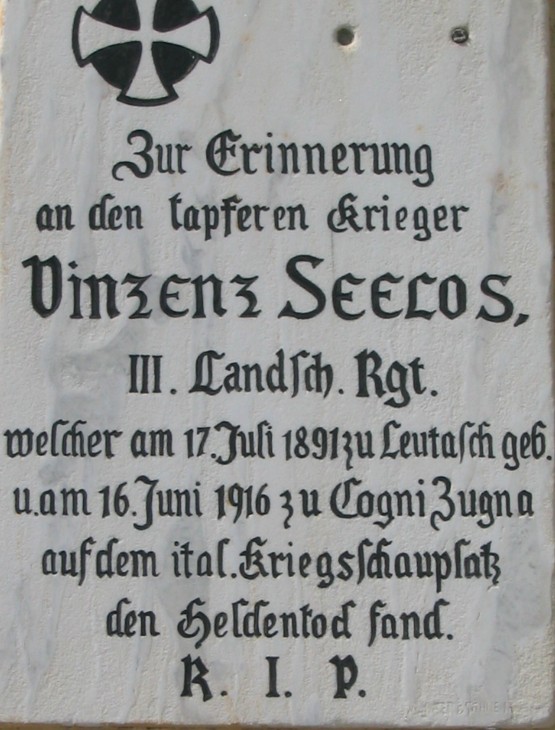 Zur Erinnerung
an den tapferen Krieger
Vinzenz Seelos,
III. Landsch. Rgt.
welcher am 17. Juli 1891 zu Leutasch geb.
u. am 16. Juni 1916 zu Cogni Zugna
auf dem ital. Kriegsschauplatz
den Heldentod fand.
R. I. P.